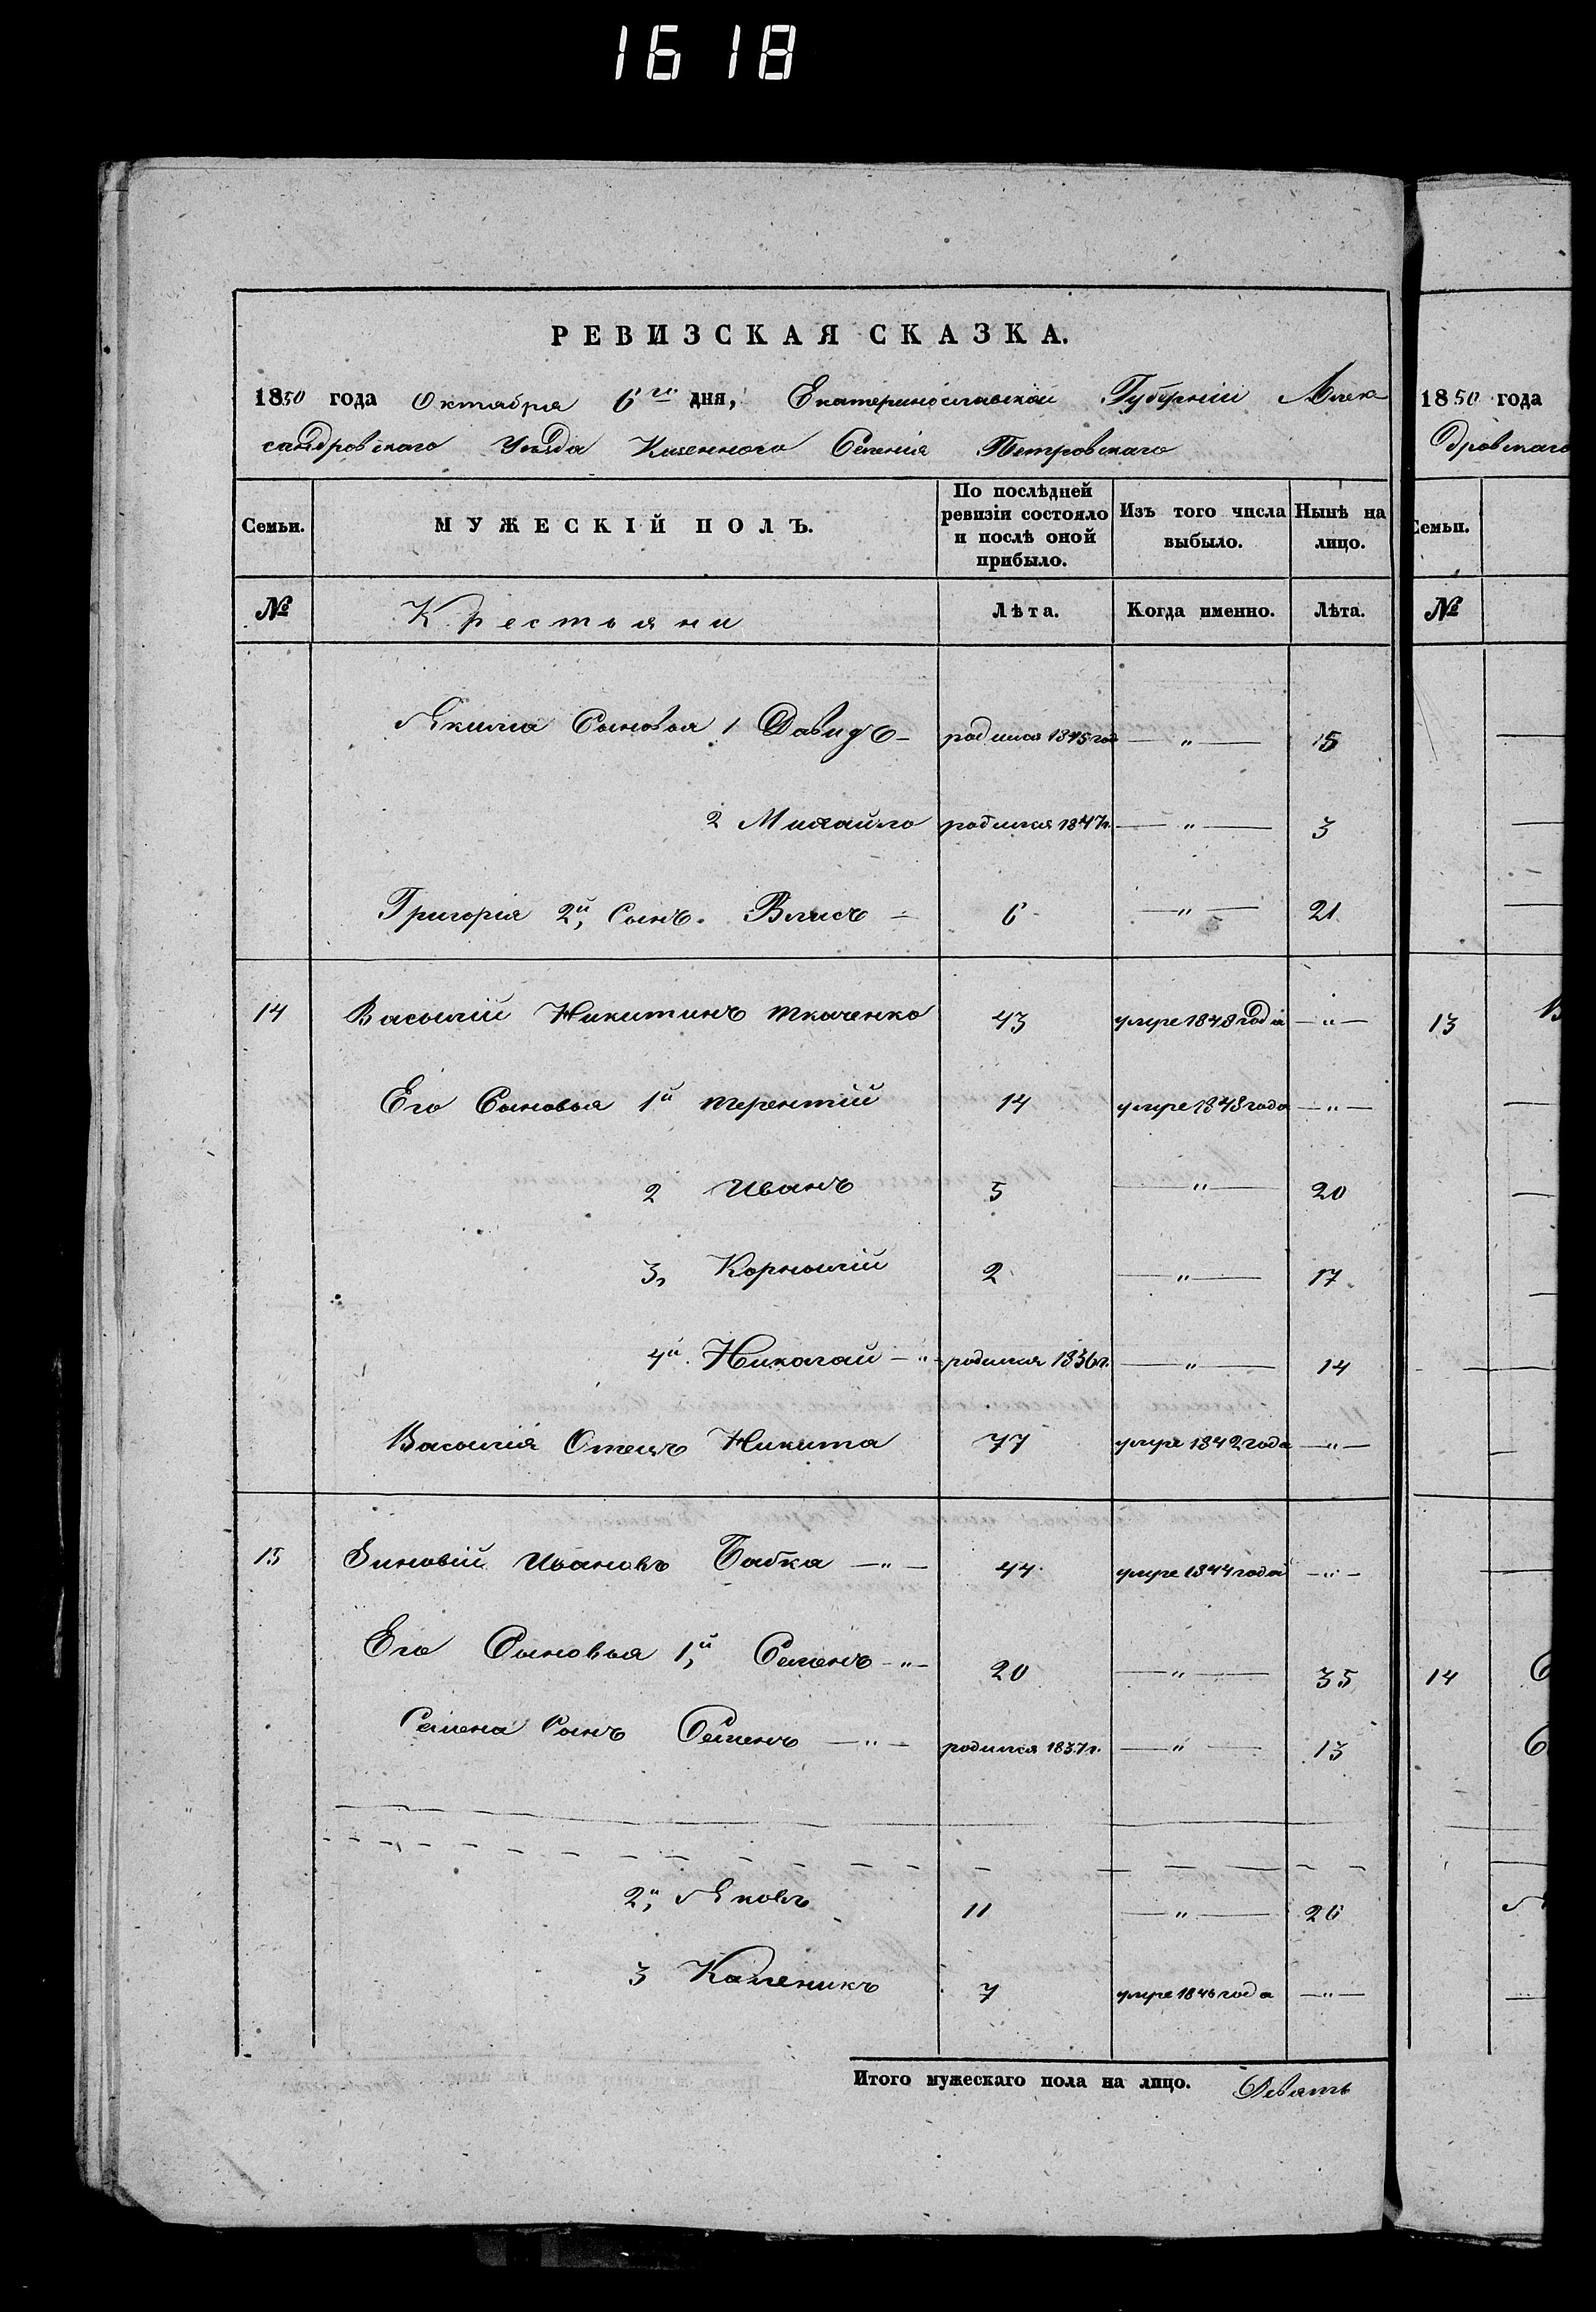 16 18
РЕВИЗСКАЯ СКАЗКА.
1850 года Октября 6го дня, Екатеринославской Губернiи Алек
сандровского Уѣзда Казенного Селенiя Петровскаго
Семьи. МУЖЕСКІЙ ПОЛЪ. По послѣдней ревизіи состояло и послѣ оной прибыло. Изъ того числа выбыло. Нынѣ на лицо.
№ Крестьяни Лѣта. Когда именно. Лѣта.
Якима Сыновья 1 Давидъ — родился 1845 год — " — 5
2 Михайло родился 1847г. — " — 3
Григорія 2й, Сынъ. Власъ — 6 — " — 21
14 Василій Никитинъ Ткаченко 43 умре 1848 года — " —
Его Сыновья 1й Терентій 14 умре 1848 года — " —
2 Иванъ 5 — " — 20
3, Корнилій 2 — " — 17
4й. Николай — " — родился 1836г. — " — 14
Василія Отецъ Никита 77 умре 1842 года — " —
15 Зиновій Ивановъ Бабка — " — 44 умре 1844 года — " —
Его Сыновья 1й, Семенъ — " — 20 — " — 35
Семена Сынъ Семенъ — " — родился 1837г. — " — 13
2й, Яковъ 11 — " — 26
3 Каленикъ 7 умре 1846 года — " —
Итого мужескаго пола на лицо. Девять
1850 года
дровскаго
Семьи.
№
13
14